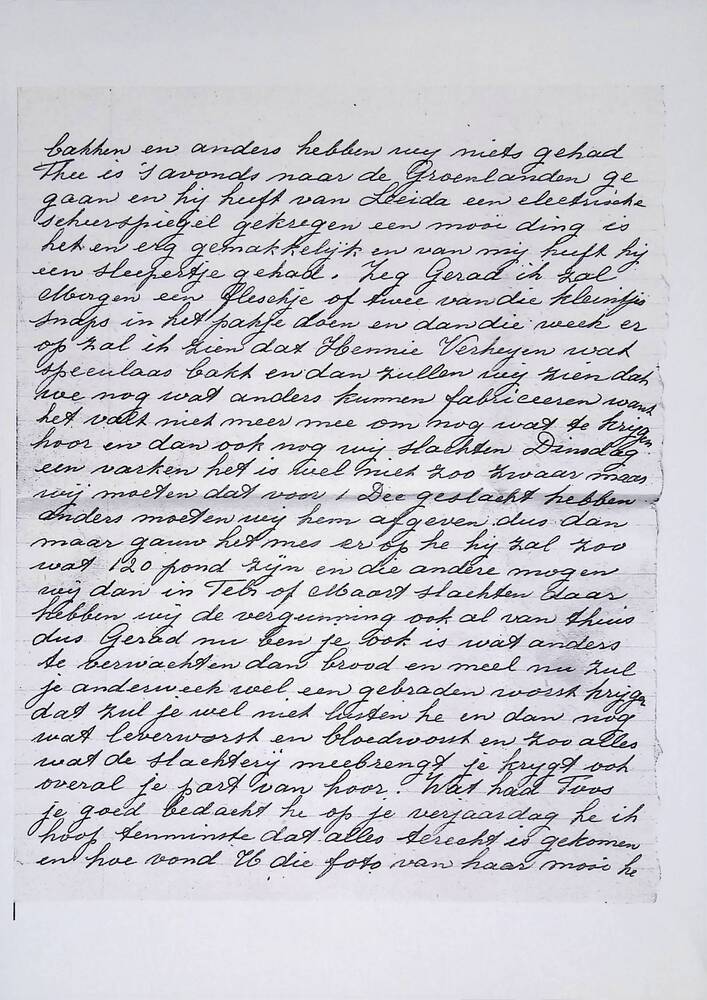 bakken en anders hebben wij niets gehad
Thee is 's avonds naar de Groenlanden ge
gaan en hij heeft van Leida een electrische
scheerspiegel gekregen een mooi ding is
het en erg gemakkelijk en van mij heeft hij
een sleepertje gehad. Zeg Gerad ik zal
Morgen een fleschje of twee van die kleintjes
snaps in het pakje doen en dan die week er
op zal ik zien dat Hennie Verheyen wat
speculaas bakt en dan zullen wij zien dat
we nog wat anders kunnen fabriceeren want
het valt niet meer mee om nog wat te krijgen
hoor en dan ook nog wij slachten Dinsdag
een varken het is wel niet zoo zwaar maar
wij moeten dat voor 1 Dec geslacht hebben
anders moeten wij hem afgeven dus dan
maar gauw het mes er op he hij zal zoo
wat 120 pond zijn en die andere mogen
wij dan in Feb of Maart slachten daar
hebben wij de vergunning ook al van thuis
dus Gerad nu ben je ook is wat anders
te verwachten dan brood en meel nu zul
je anderweek wel een gebraden worst krijgen
dat zul je wel niet lusten he en dan nog
wat leverworst en bloedworst en zoo alles
wat de slachterij meebrengt je krygt ook
overal je part van hoor. Wat had Toos
je goed bedacht he op je verjaardag he ik
hoop tenminste dat alles terecht is gekomen
en hoe vond U die foto van haar mooi he